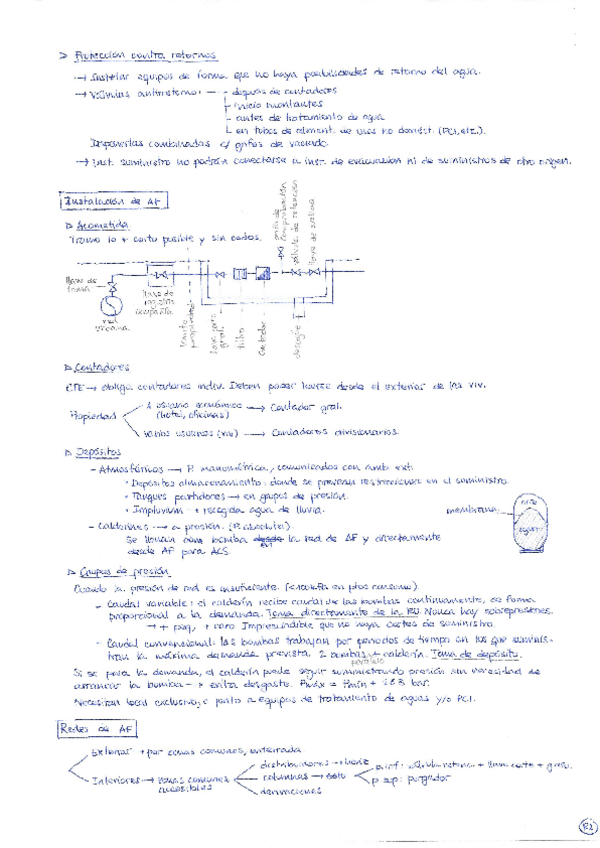 ▷ Protección contra retornos
→ Instalar equipos de forma que no haya posibilidades de retorno del agua.
→ Válvulas antirretorno: - después de contadores
- inicio montantes
- antes de tratamiento de agua
- en tubos de aliment. de usos no domést. (PCI, etc.).
Disponerlas combinadas c/ grifos de vaciado.
→ Inst. suministro no podrán conectarse a inst. de evacuación ni de suministros de otro origen.
Instalación de AF
▷ Acometida
Tramo lo + corto posible y sin codos.
grifo de comprobación
válvula de retención
llave de salida
llave de toma
red urbana
llave de registro compañía
llave paso gral.
filtro
contador
desagüe
▷ Contadores
CTE → obliga contadores indiv. Deben poder leerse desde el exterior de las viv.
Propiedad
(hotel, oficinas) → Contador gral.
varios usuarios (viv) → Contadores divisionarios.
▷ Depósitos
- Atmosféricos → P. manométrica, comunicados con amb. ext.
• Depósitos almacenamiento: donde se prevean restricciones en el suministro.
• Tanques partidores → en grupos de presión.
• Impluvium → recogida agua de lluvia.
- Calderines → a presión. (P. absoluta).
Se llenan con bomba desde la red de AF y directamente
desde AF para ACS.
membrana
aire
agua
▷ Grupos de presión
Cuando la presión de red es insuficiente.
- Caudal variable: el calderín recibe caudal de las bombas continuamente, de forma
proporcional a la demanda. Toma directamente de la RU. Nunca hay sobrepresiones.
→ + peq, + caro Imprescindible que no haya cortes de suministro.
- Caudal convencional: las bombas trabajan por periodos de tiempo en los que suminis-
tran la máxima demanda prevista. 2 bombas + calderín. Toma de depósito.
paralelo
Si se para la demanda, el calderín puede seguir suministrando presión sin necesidad de
arrancar la bomba → evita desgaste. Pmáx = Pmín + bar.
Necesitan local exclusivo, o junto a equipos de tratamiento de aguas y/o PCI.
Redes de AF
Exterior → por zonas comunes, enterrada
Interiores → zonas comunes accesibles
distribuidores → horiz
columnas → p. inf: + llave corte + grifo.
p. sup: purgador
derivaciones